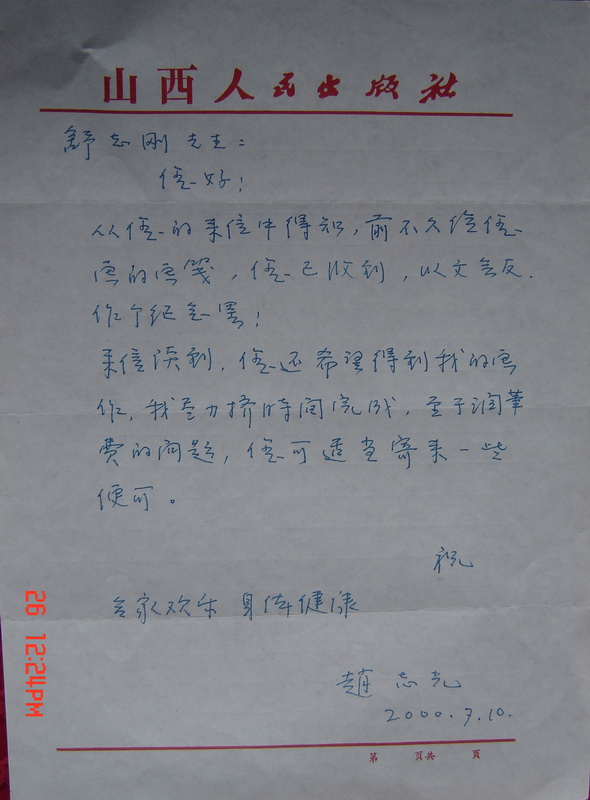 山西人民出版社
舒志刚先生：
您好！
从您的来信中得知，前不久给您
画的画笺，您已收到，以文会友.
作个纪念罢！
来信谈到，您还希望得到我的画
作，我尽力挤時间完成，至于润筆
费的问题，您可适当寄来一些
便可。
祝
合家欢乐 身体健康
趙志光
2000.7.10.
第 页共 页
26 12:24PM